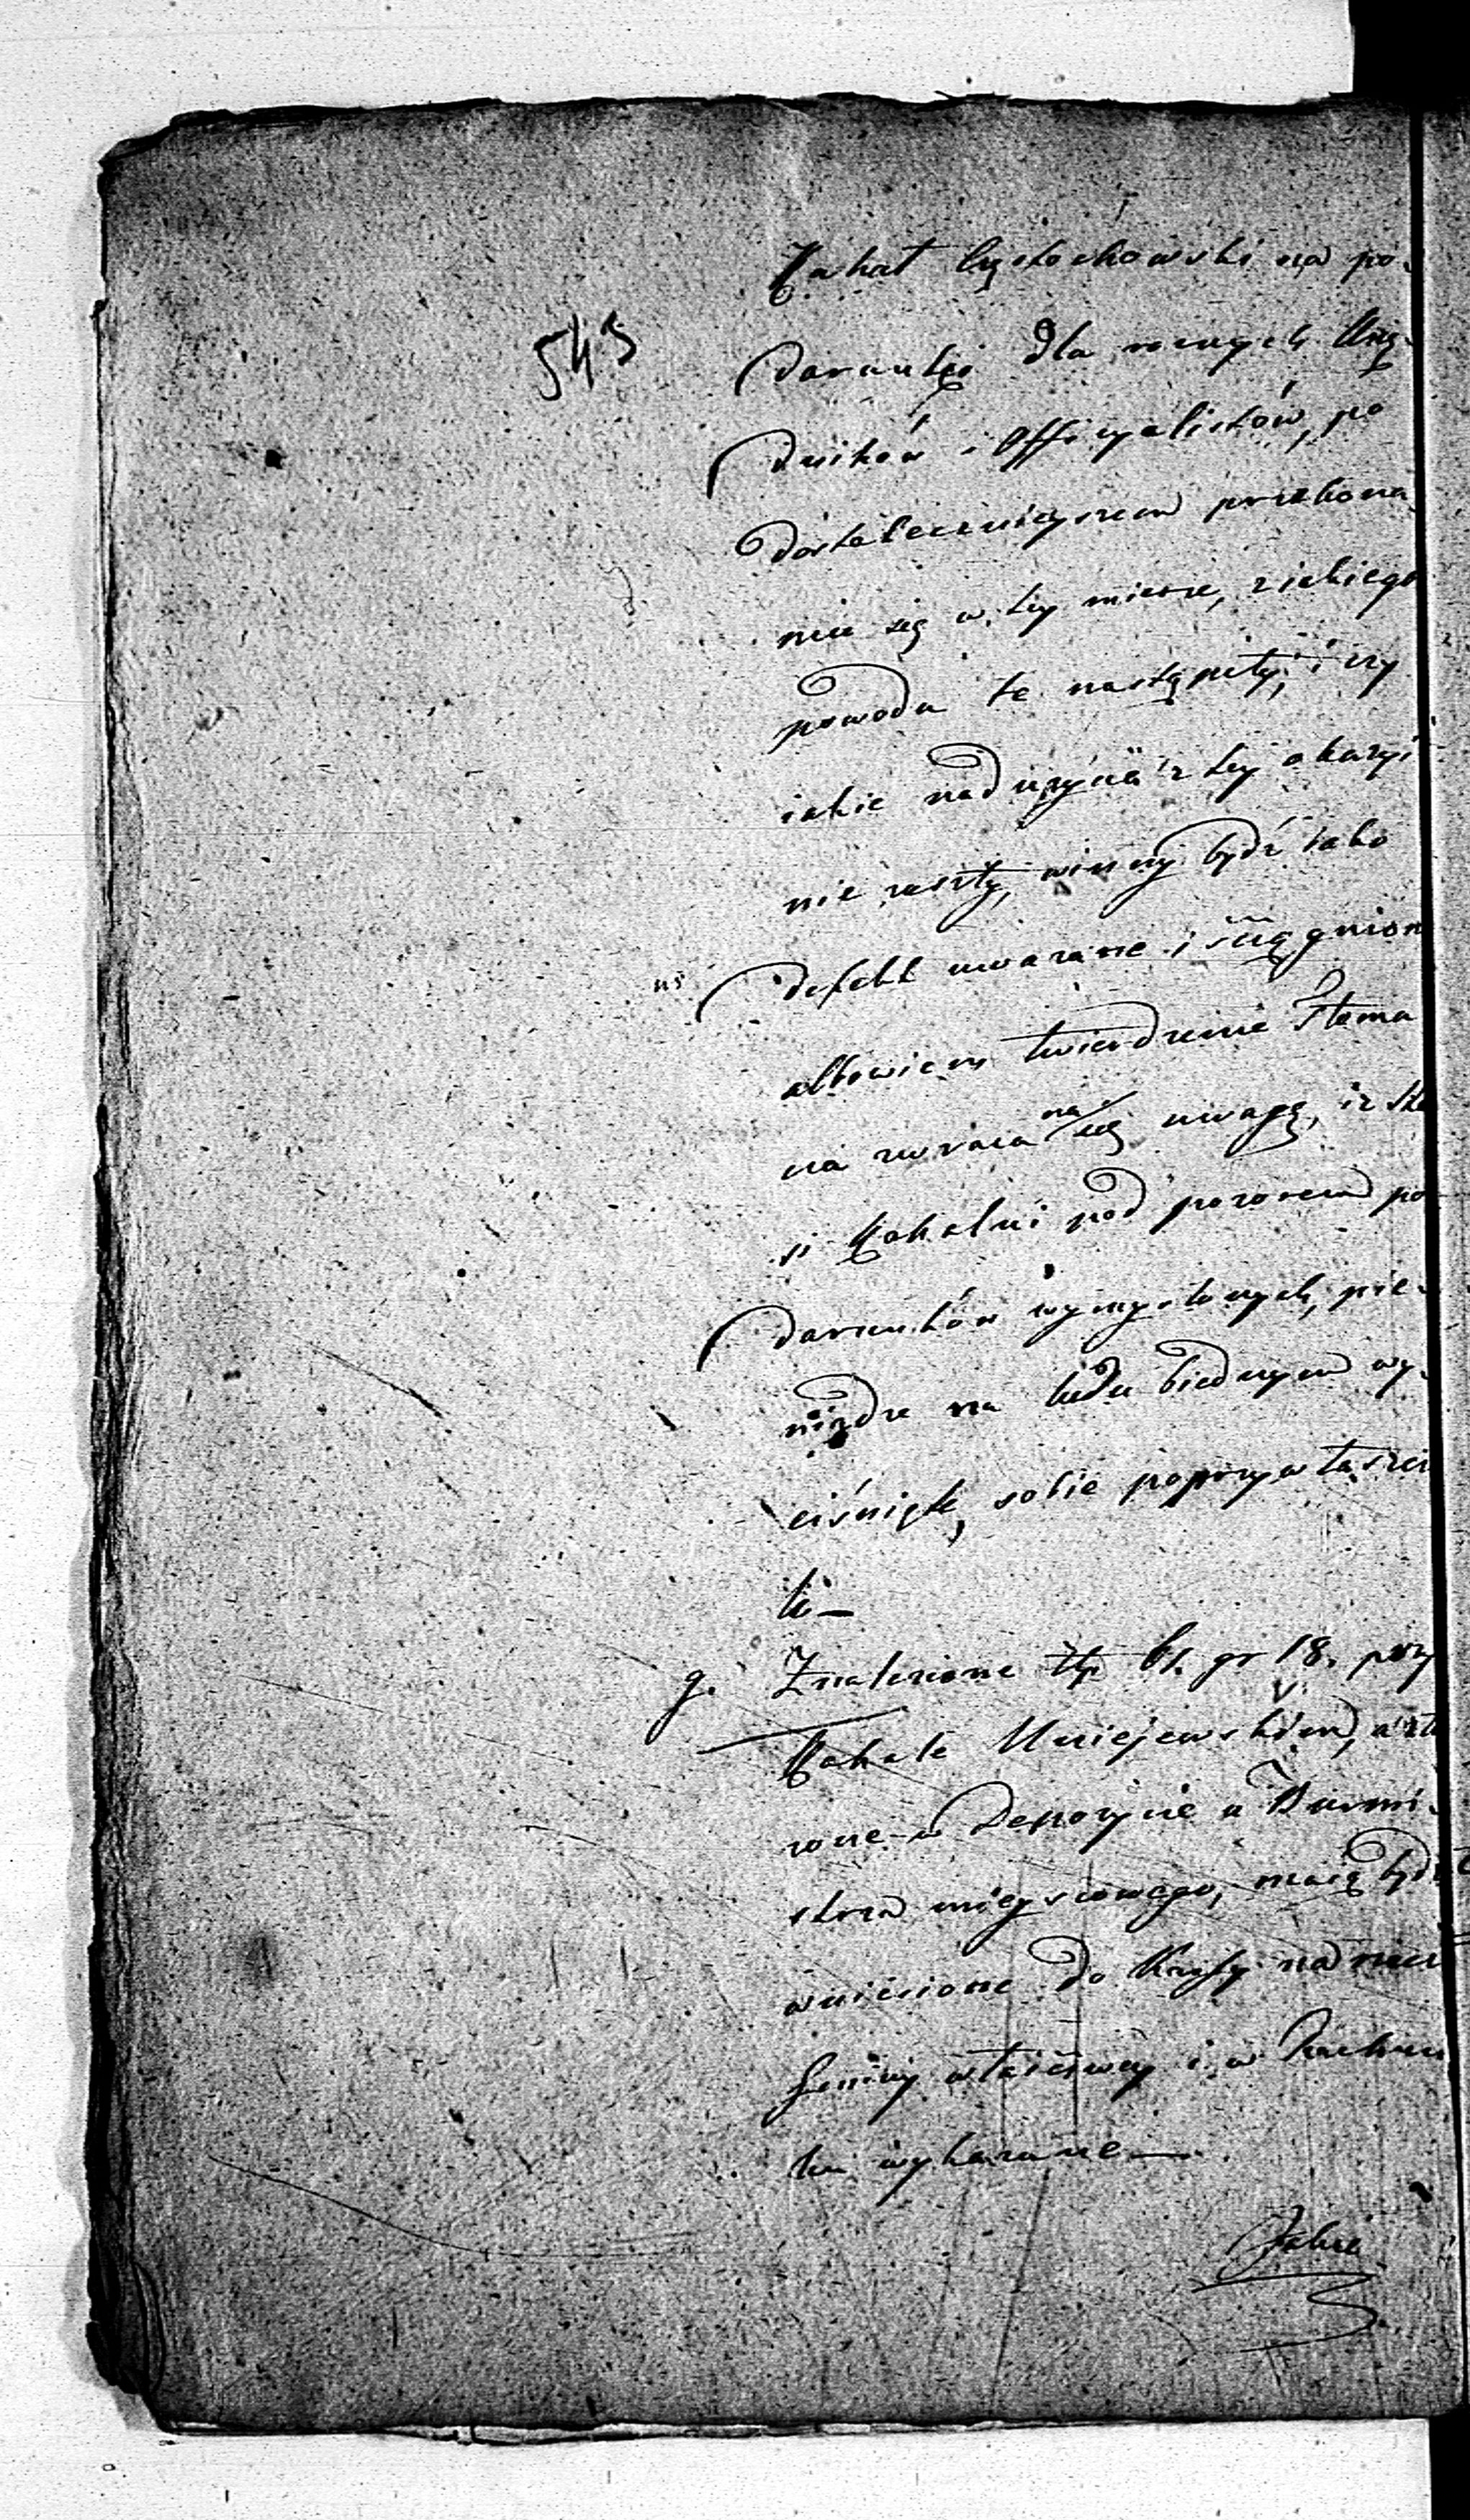 Kahał Częstochowski na po-
543
darunki dla roznych Urzę-
dników i Officyalistów, po
dostatecznieyszem przekona
niu się w tey mierze, z iakiego
powodu te nastąpiły, i czy
iakie nadużycia z tey okazyi
nie zaszły, winny bydź iako
defekt uważane i sciągnion
albowiem twierdzenie Słoma
na zwraca na się uwagę, iz Sta
si Kahalni pod pozorem po
darunków wymyslonych, pie-
niądze na ludu biednym wy-
ciśnięte, sobie poprzywłaszcz
li —
g. Znalezione Złp. 61. gr 18. przy
Kahale Uniejewskim, a zło
zone w Depozycie u Burmi-
strza mieyscowego, maią bydź
wniesione do Kassy
właściwey i w Rachun
ku wykazane —
Jakie